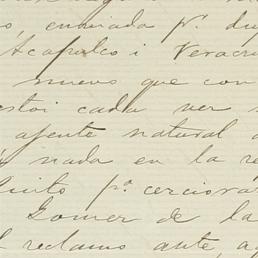 enviada pr. du
Acapulco i Veracru
nuevo que con
estoi cada vez
ajente natural
nada en la re
Quito pa. cerciorar
Gomez de la
reclamo ante, a